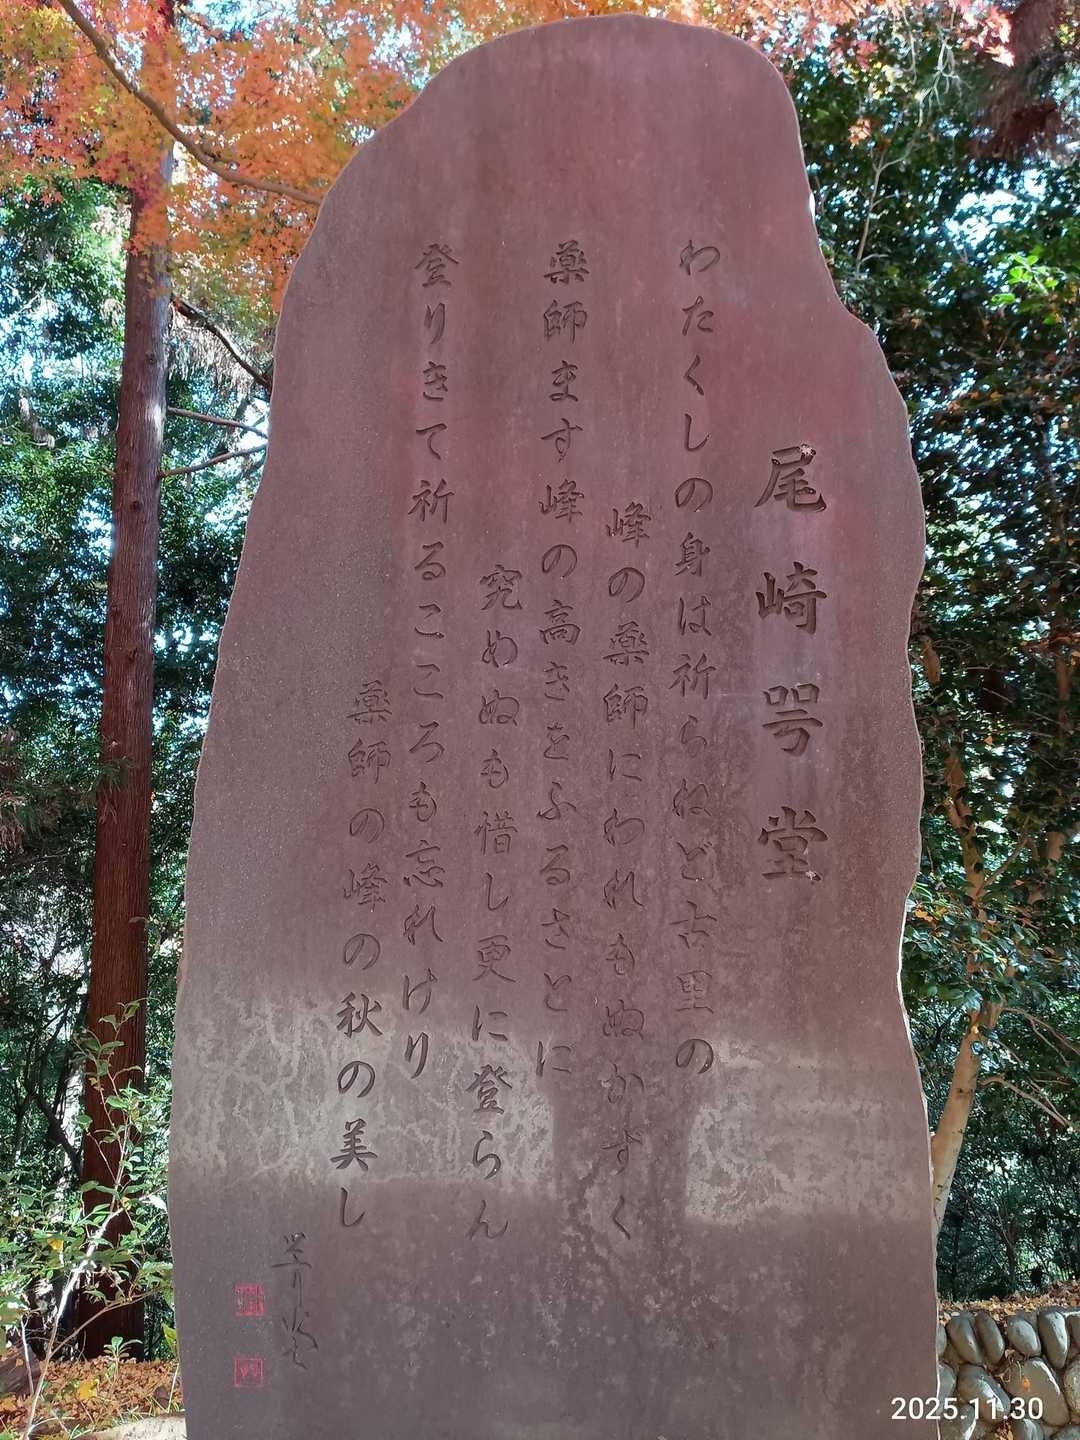 尾崎咢堂
わたくしの身は祈らねど古里の
峰の薬師にわれもぬかずく
薬師ます峰の高きをふるさとに
究めぬも惜し更に登らん
登りきて祈るこころも忘れけり
薬師の峰の秋の美し
咢堂
2025.11.30